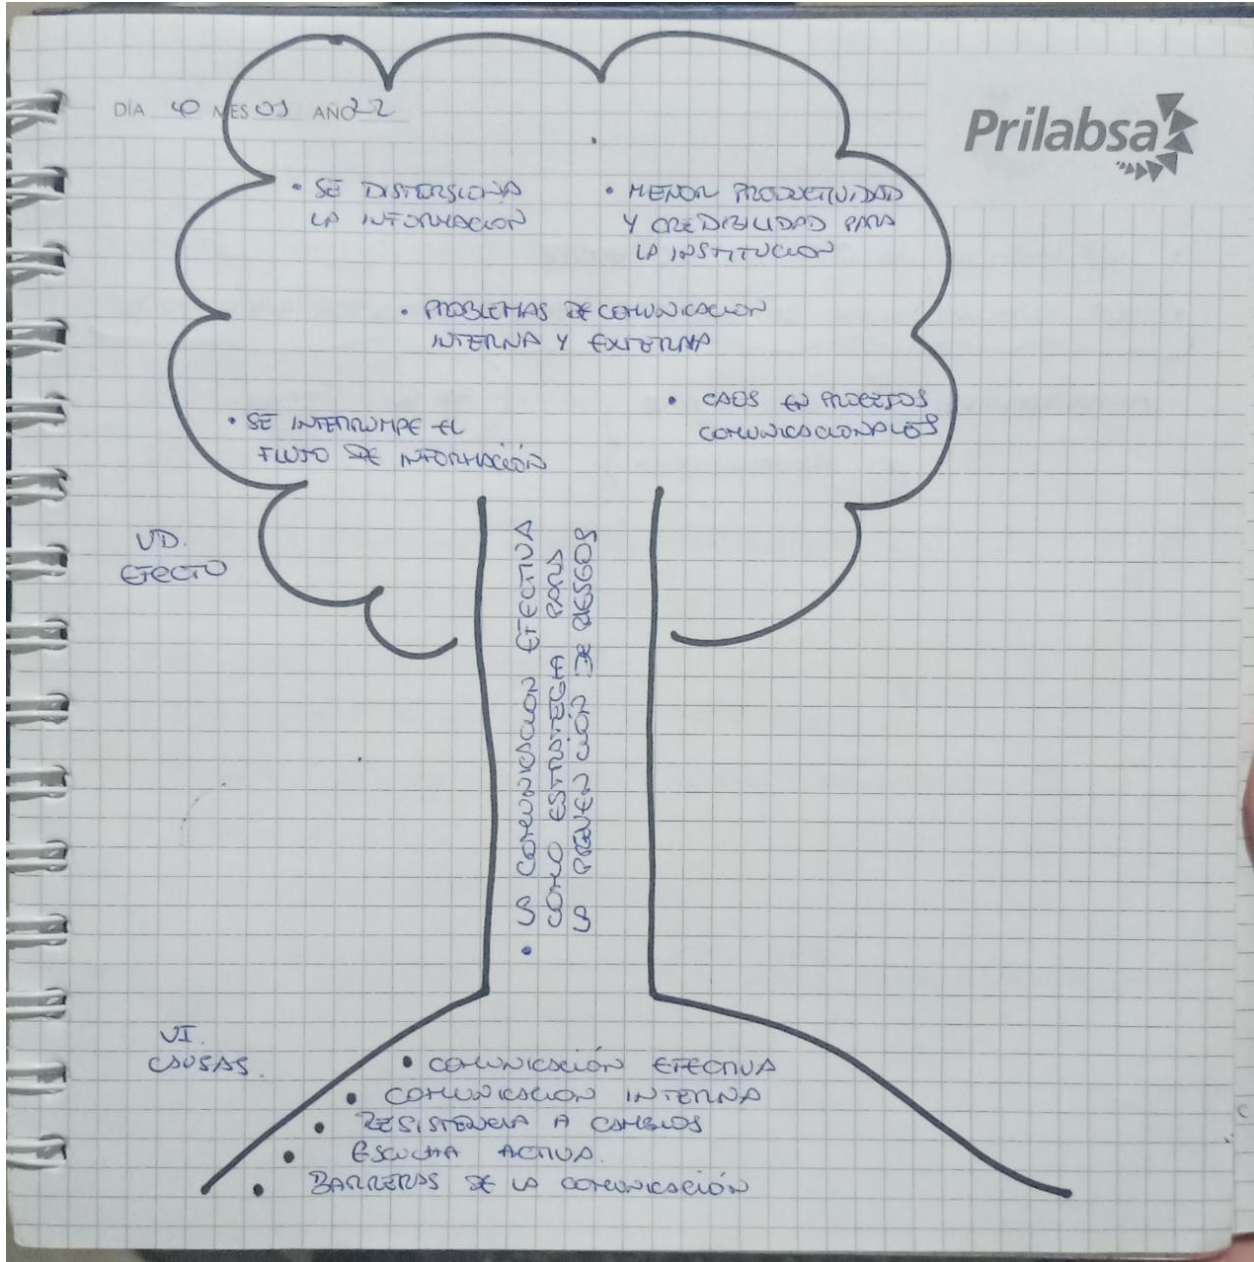 DÍA MES 01 AÑO 22
Prilabsa
• SE DISTORSIONA
LA INFORMACION
• MENOR PRODUCTIVIDAD
Y CREDIBILIDAD PARA
LA INSTITUCION
• PROBLEMAS DE COMUNICACION
INTERNA Y EXTERNA
• SE INTERRUMPE EL
FLUJO DE INFORMACIÓN
• CAOS EN PROCESOS
COMUNICACIONALES
VD.
EFECTO
• LA COMUNICACION EFECTIVA
COMO ESTRATEGIA PARA
LA PREVENCIÓN DE RIESGOS
VI.
CAUSAS.
• COMUNICACIÓN EFECTIVA
• COMUNICACION INTERNA
• RESISTENCIA A CAMBIOS
• ESCUCHA ACTIVA.
• BARRERAS DE LA COMUNICACIÓN